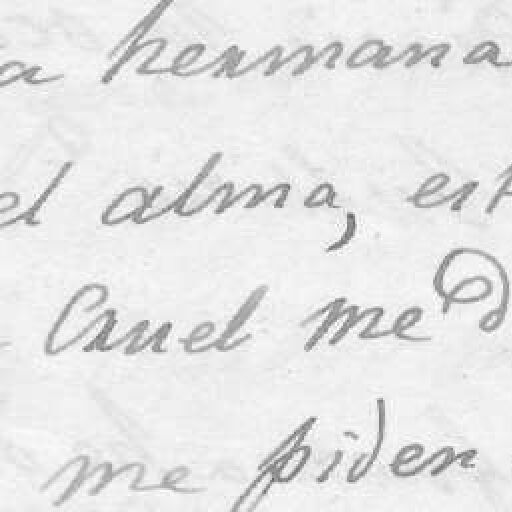 a hermana
el alma, est
Cruel me d
me piden